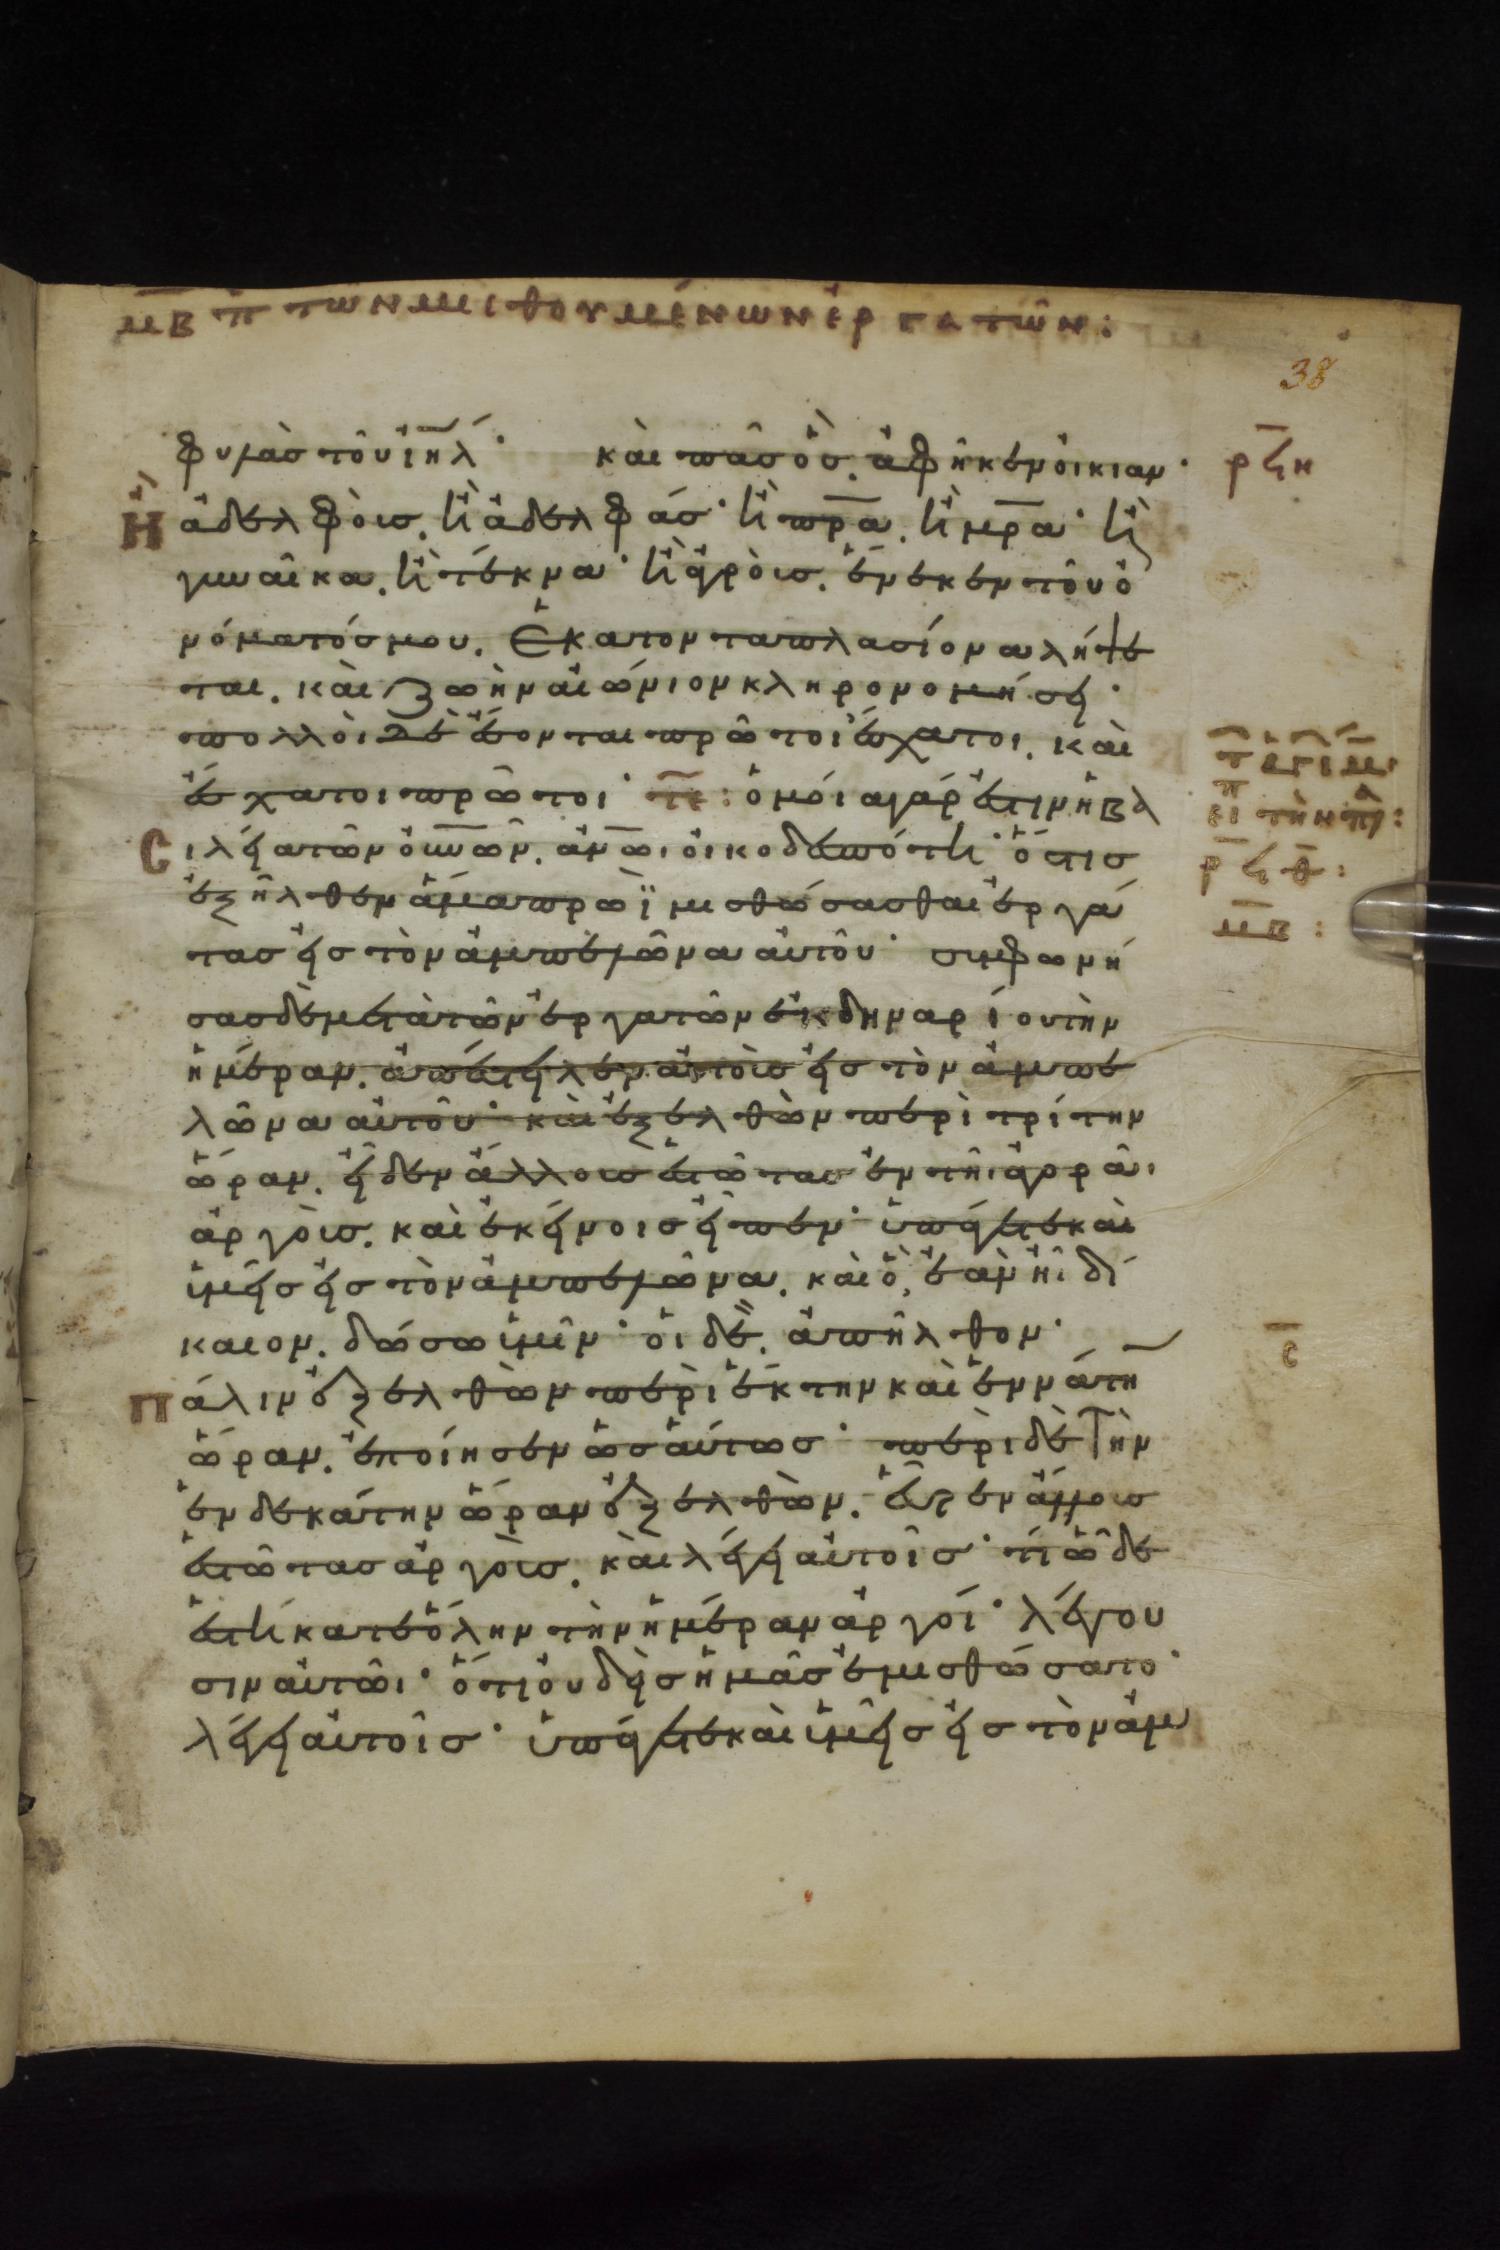 μβ π τῶν μιθουμένων ἐργατῶν:
38
φυλὰσ τοῦ ἰηλ· καὶ πᾶσ ὃσ, ἀφῆκεν οἰκίαν· ρϟη
ἢ ἀδελφοὺσ, ἢ ἀδελφάσ· ἢ πρα, ἢ μρα· ἢ
γυναῖκα, ἢ τέκνα· ἢ ἀγροὺσ, ἕνεκεν τοῦ ὀ
νόματόσ μου, ἑκατονταπλασίονα λήψε
ται, καὶ ζωὴν αἰώνιον κληρονομήσει·
πολλοὶ δὲ ἔσονται πρῶτοι ἔσχατοι, καὶ
ἔσχατοι πρῶτοι· τε: ὁμοία γάρ ἐστιν ἡ βα
σιλεία τῶν οὐνῶν, ἀνῶι οἰκοδεσπότη· ὅστισ
ρϟθ:
ἐξῆλθεν ἅμα πρωῒ μισθώσασθαι ἐργά
μβ:
τασ εἰσ τὸν ἀμπελῶνα αὐτοῦ· συμφωνή
σασ δὲ μετὰ τῶν ἐργατῶν ἐκ δηναρίου τὴν
ἡμέραν, ἀπέστειλεν αὐτοὺσ εἰσ τὸν ἀμπε
λῶνα αὐτοῦ· καὶ ἐξελθὼν περὶ τρίτην
ὥραν, εἶδεν ἄλλουσ ἑστῶτασ ἐν τῆι ἀγορᾶι
ἀργοὺσ, καὶ ἐκείνοισ εἶπεν· ὑπάγετε καὶ
ὑμεῖσ εἰσ τὸν ἀμπελῶνα, καὶ ὃ, ἐὰν ἦι δί
καιον, δώσω ὑμῖν· οἱ δὲ, ἀπῆλθον·
ϲ
πάλιν ἐξελθὼν περὶ ἕκτην καὶ ἐννάτη
ὥραν, ἐποίησεν ὡσαύτωσ· περὶ δὲ τὴν
ἑνδεκάτην ὥραν ἐξελθὼν, εὗρεν ἄλλουσ
ἑστῶτασ ἀργοὺσ, καὶ λέγει αὐτοῖσ· τί ὧδε
ἑστήκατε ὅλην τὴν ἡμέραν ἀργοί· λέγου
σιν αὐτῶι· ὅτι οὐδεὶσ ἡμᾶσ ἐμισθώσατο·
λέγει αὐτοῖσ· ὑπάγετε καὶ ὑμεῖσ εἰσ τὸν ἀμ